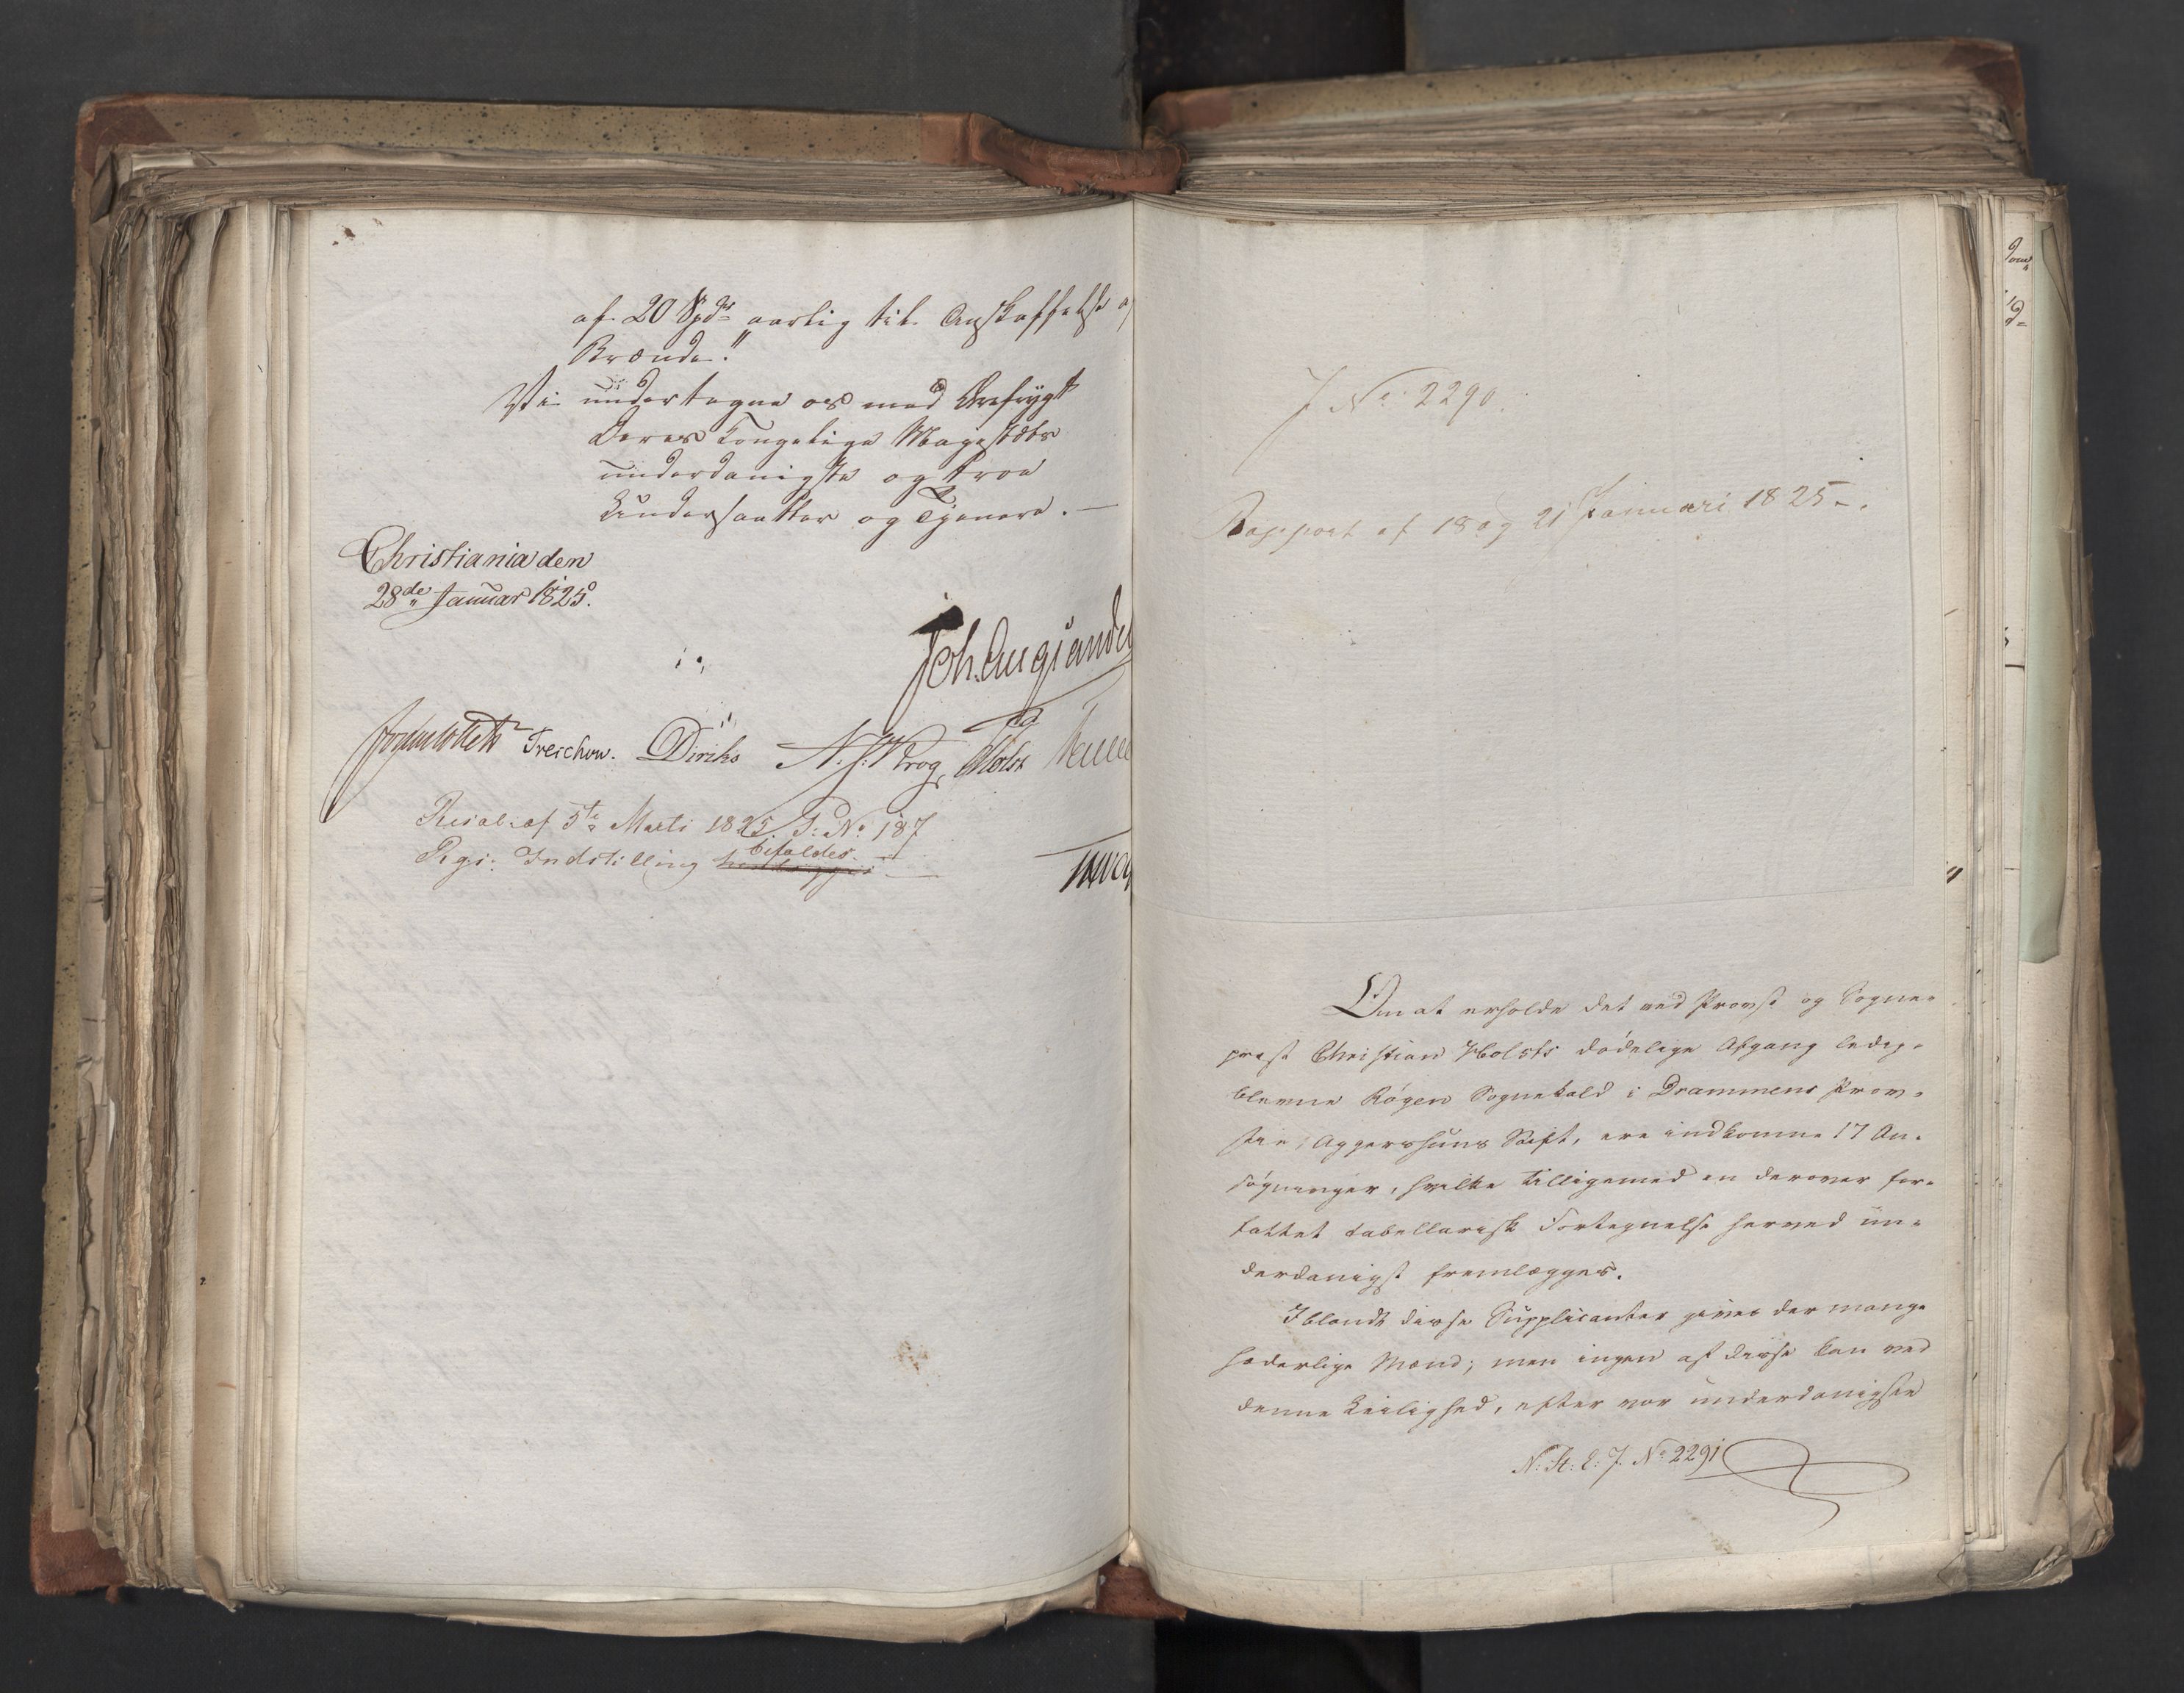 af 20 Spd. aarlig til Anskaffelse
Brænde."
Vi undertegne os med Ærefrygt
Deres Kongelige Majestæts
underdanigste og troe
Undersaatter og Tjenere. —
Christiania den
28de Januar 1825.
Joh. Aug. Sandel
Treschow. Diriks N. J. Krog, Holst
Resol. af 5te Marti 1825 P: No 187
bifaldes.
Rgs: Indstilling
J No 2290.
Rapport af 18 og 21 Januari 1825.
Om at erholde det ved Provst og Sogne-
præst Christian Holsts dødelige Afgang ledig-
blevne Røgen Sognekald i Drammens Prov-
stie, Aggershuus Stift, ere indkomne 17 An-
søgninger, hvilke tilligemed en derover for-
fattet tabellarisk Fortegnelse herved un-
derdanigst fremlægges.
Iblandt disse Supplicanter gives der mange
hæderlige Mænd; men ingen af disse kan ved
denne Leilighed, efter vor underdanigste
N: St: S: J. No 2291